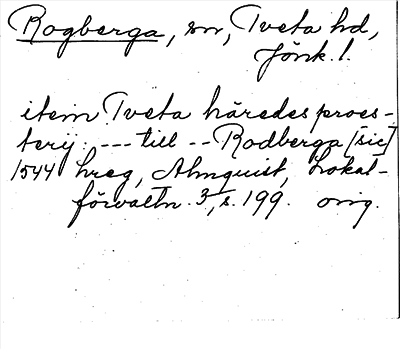 Rogberga, sn, Tveta hd,
Jönk. l.
item Tveta häredes proes-
terij: --- till -- Rodberga [sic]
1544 hreg, Almquist, Lokal-
förvaltn. 3, s. 199. orig.